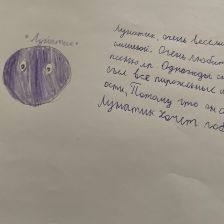 "Лунатик"
Лунатик, очень весёлый
смешной. Очень любит
Однажды
съел все пирожные
ости, Потому что он с
Лунатик хочет поб